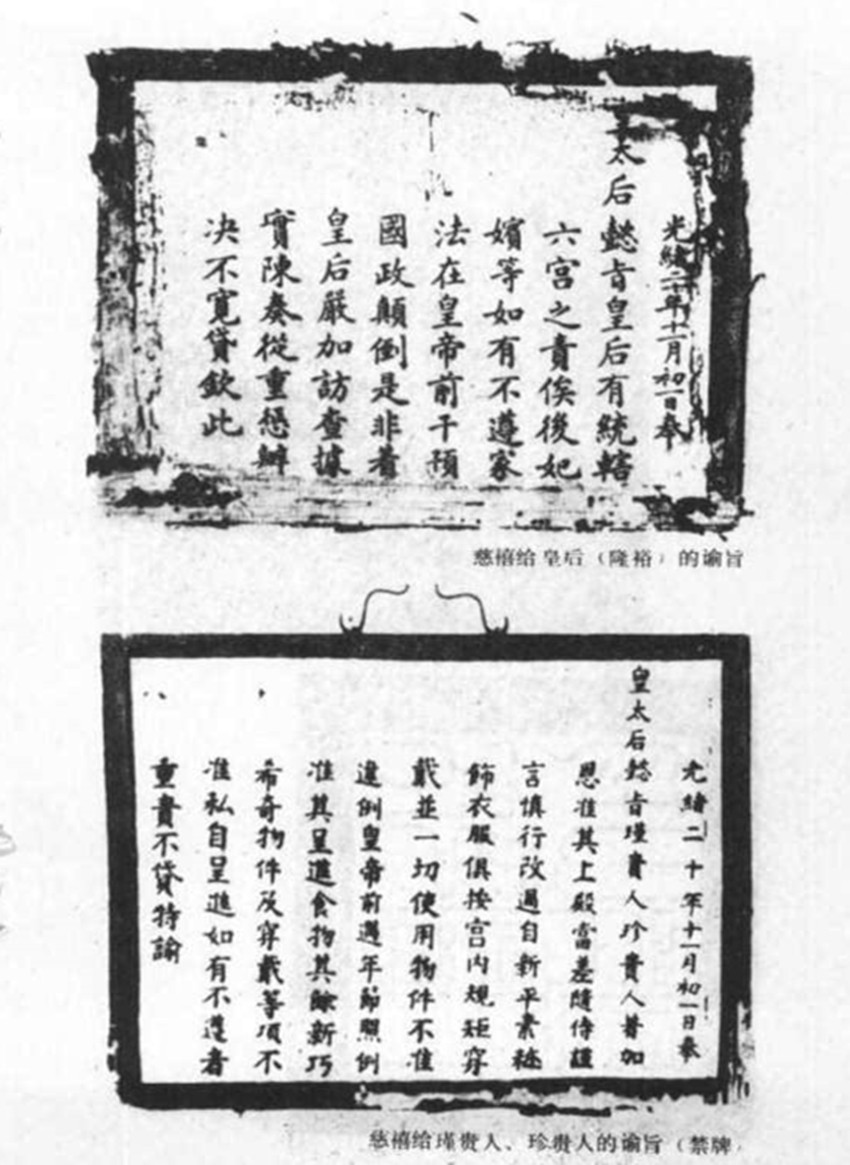 光緒二十年十一月初一日奉
皇太后懿旨皇后有統轄
六宮之責俟後妃
嬪等如有不遵家
法在皇帝前干預
國政顛倒是非着
皇后嚴加訪查據
實陳奏從重懲辦
决不寬貸欽此
慈禧给皇后（隆裕）的谕旨
光緒二十年十一月初一日奉
皇太后懿旨瑾貴人珍貴人著加
恩准其上殿當差隨侍謹
言慎行改過自新平素粧
飾衣服俱按宮內規矩穿
戴並一切使用物件不准
違例皇帝前遇年節照例
准其呈進食物其餘新巧
希奇物件及穿戴等項不
准私自呈進如有不遵者
重責不貸特諭
慈禧给瑾贵人、珍贵人的谕旨（禁牌）